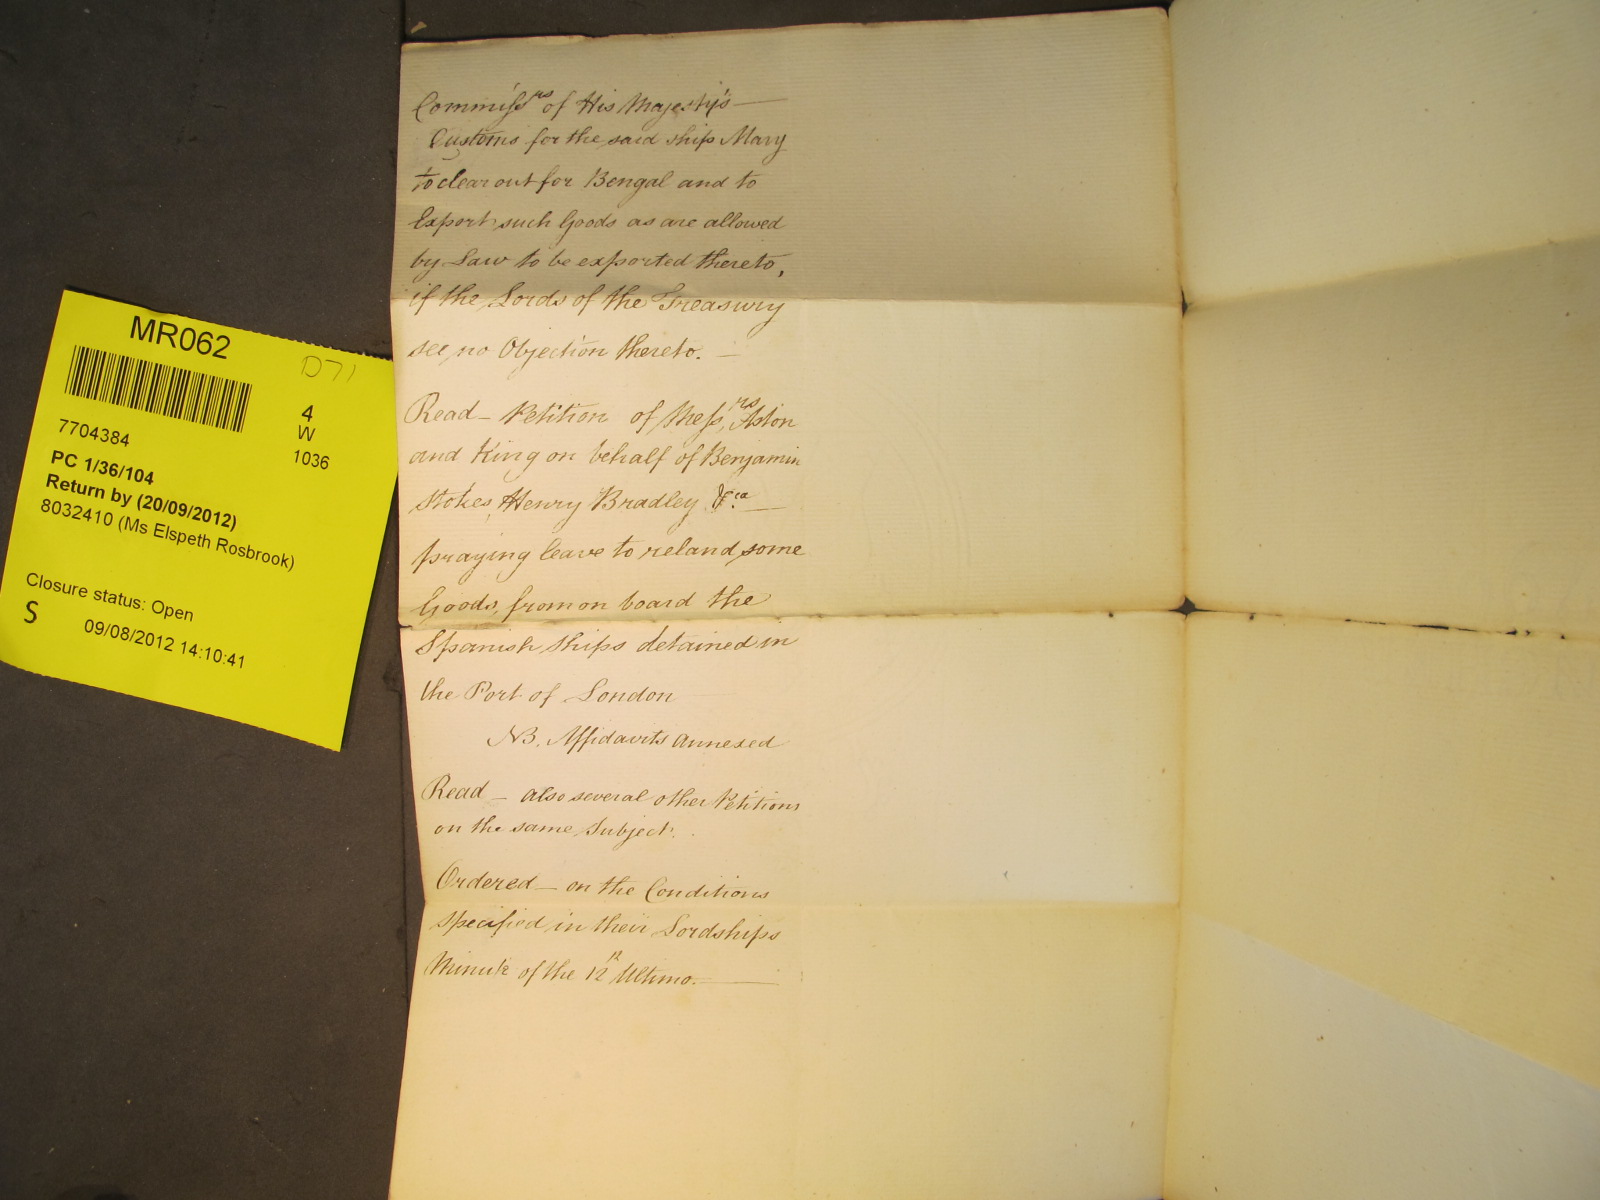 MR062
D71
4
W
1036
7704384
PC 1/36/104
Return by (20/09/2012)
8032410 (Ms Elspeth Rosbrook)
Closure status: Open
S
09/08/2012 14:10:41
Commissrs of His Majesty's —
Customs for the said ship Mary
to clear out for Bengal and to
Export such Goods as are allowed
by Law to be exported thereto,
if the Lords of the Treasury
see no Objection thereto. —
Read — Petition of Messrs Aston
and King on behalf of Benjamin
Stokes, Henry Bradley &ca —
praying leave to reland some
Goods, from on board the
Spanish Ships detained in
the Port of London
NB. Affidavits annexed
Read — also several other Petitions
on the same Subject.
Ordered — on the Conditions
specified in their Lordships
Minute of the 12th Ultimo. —